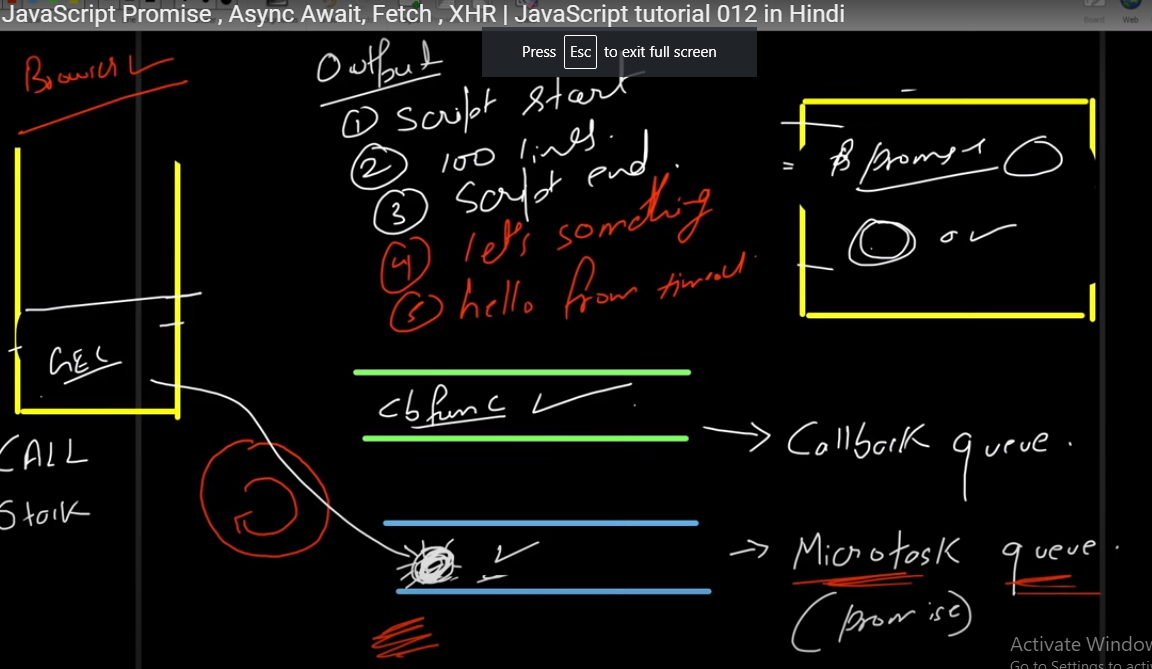 JavaScript Promise , Async Await, Fetch , XHR | JavaScript tutorial 012 in Hindi
Board
Web
Press Esc to exit full screen
Browser
Output
① Script start
② 100 lines.
③ Script end.
④ let's something
⑤ hello from timeout
GEC
CALL
Stack
cb func
Callback queue.
Microtask queue.
(promise)
Activate Window
Go to Settings to acti